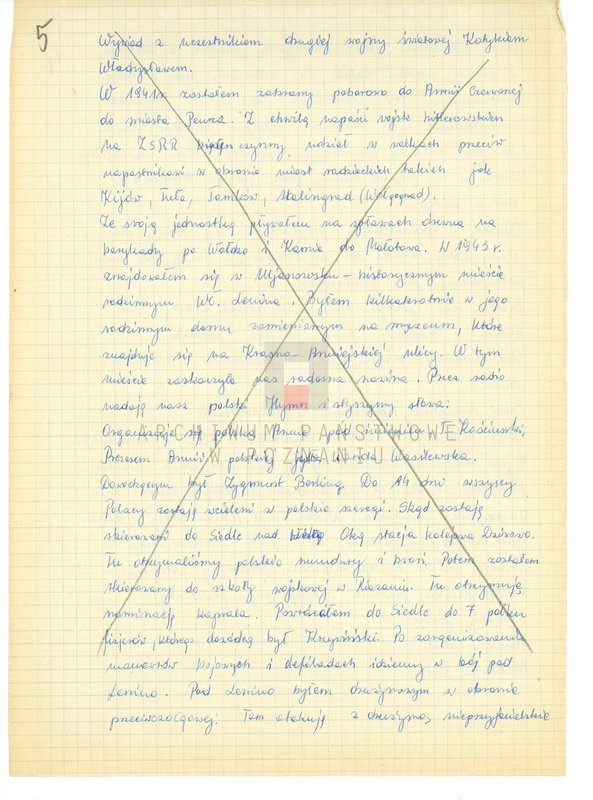 5
Wywiad z uczestnikiem drugiej wojny światowej Kotykiem
Władysławem.
W 1941r. zostałem zabrany poborowo do Armii Czerwonej
do miasta Penza. Z chwilą napaści wojsk hitlerowskich
na ZSRR czynny udział w walkach przeciw
napastnikowi w obronie miast radzieckich takich jak
Kijów, Tuła, Tambów, Stalingrad (Wołgograd).
Ze swoją jednostką pływałem na spławach drewna na
barykady po Wołdze i Kamie do Mołotowa. W 1943 r.
znajdowałem się w Uljanowsku – historycznym mieście
rodzinnym Wł. Lenina. Byłem kilkakrotnie w jego
rodzinnym domu zamienionym na muzeum, które
znajduje się na Krasno-Armiejskiej ulicy. W tym
mieście zaskoczyła nas radosna nowina. Przez radio
nadają nasz polski Hymn i słyszymy słowa:
Organizuje się polska Armia pod imieniem T. Kościuszki,
Prezesem Armii polskiej Wanda Wasilewska.
Dowodzącym był Zygmunt Berling. Do 14 dni wszyscy
Polacy zostają wcieleni w polskie szeregi. Skąd zostają
skierowani do Siedlc nad Oką stacja kolejowa Dziwowo.
Tu otrzymaliśmy polskie mundury i broń. Potem zostałem
skierowany do szkoły wojskowej w Riazaniu. Tu otrzymuję
nominację kaprala. Powróciłem do Siedlc do 7 pułku
którego dowódcą był Krzywiński. Po zorganizowaniu
manewrów bojowych i defiladach idziemy w bój pod
Lenino. Pod Lenino byłem drużynowym w obronie
przeciwczołgowej. Tam atakuję z drużyną nieprzyjacielskie
ARCHIWUM PAŃSTWOWE
W POZNANIU